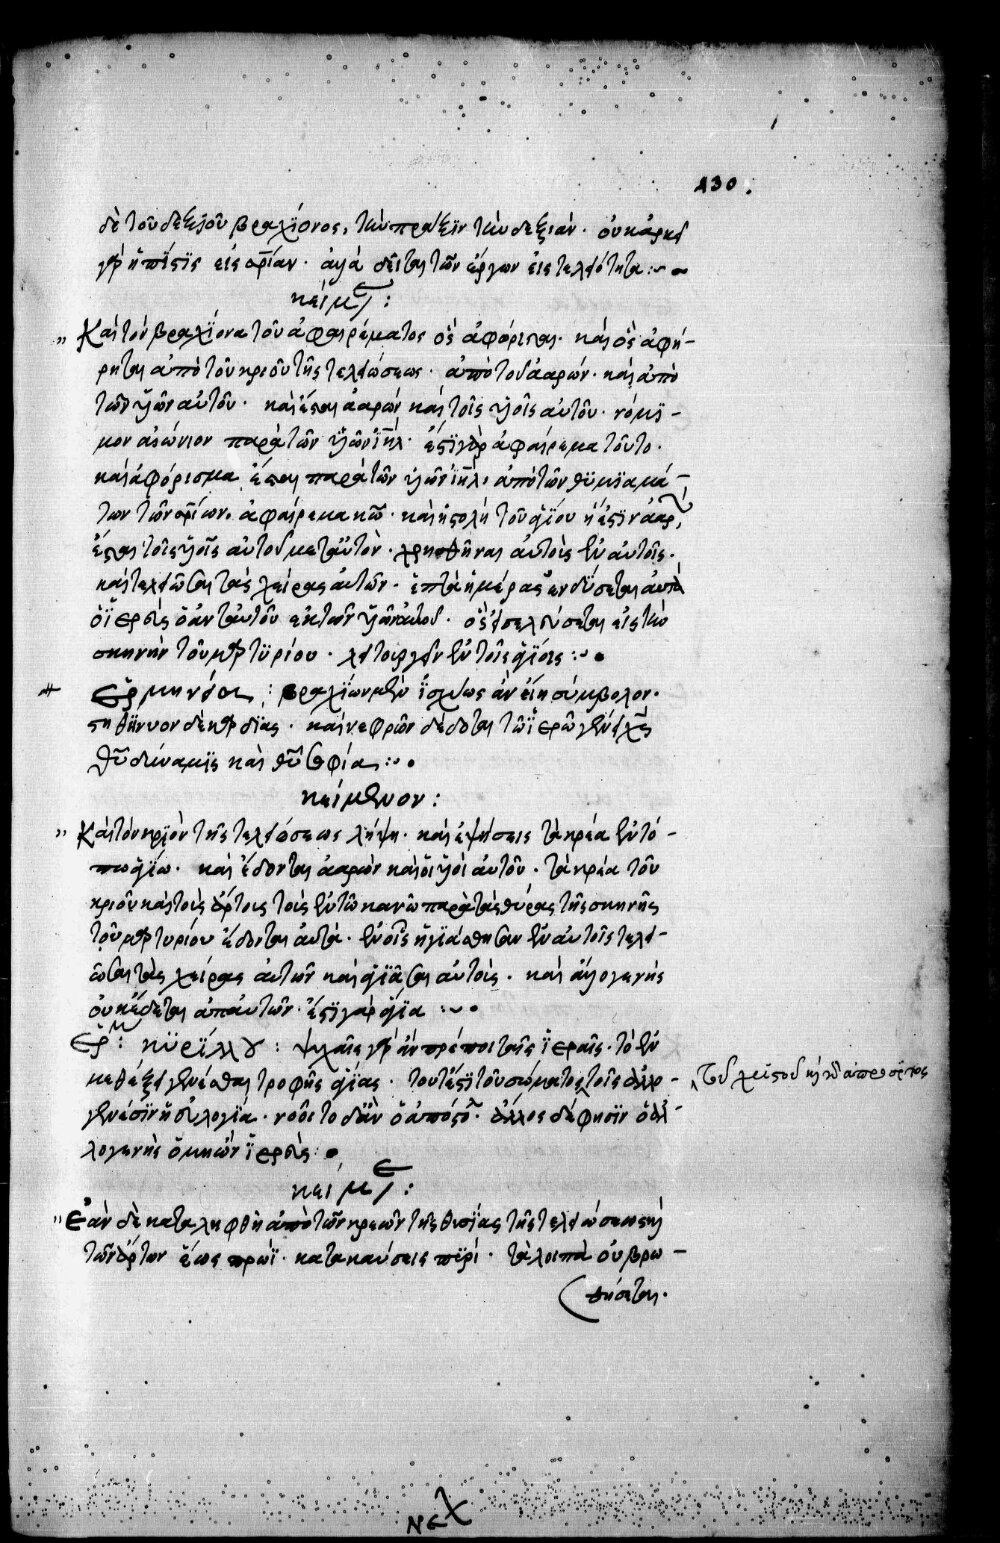 130.
δὲ τοῦ δεξιοῦ βραχίονος, τὴν πρᾶξιν τὴν δεξιάν· οὐκ ἀρκεῖ
γὰρ ἡ πίστις εἰς σρίαν· ἀλλὰ δεῖται τῶν ἔργων εἰς τελειότητα :~
κείμε :
" Καὶ τὸν βραχίονα τοῦ ἀφαιρέματος ὃς ἀφόρισται· καὶ ὃς ἀφή-
ρηται ἀπὸ τοῦ κριοῦ τῆς τελειώσεως· ἀπὸ τοῦ ἀαρών· καὶ ἀπὸ
τῶν υἱῶν αὐτοῦ· καὶ ἔσται ἀαρών καὶ τοῖς υἱοῖς αὐτοῦ· νόμι-
μον αἰώνιον παρὰ τῶν υἱῶν ιηλ· ἔστι γὰρ ἀφαίρεμα τοῦτο·
καὶ ἀφόρισμα ἔσται παρὰ τῶν υἱῶν ιηλ· ἀπὸ τῶν θυμιαμά-
των τῶν σρίων· ἀφαίρεμα κω· καὶ ἡ στολὴ τοῦ ἁγίου ἥ ἐστιν ἀαρ,
ἔσται τοῖς υἱοῖς αὐτοῦ μετ' αὐτὸν· χρισθῆναι αὐτοὺς ἐν αὐτοῖς·
καὶ τελειῶσαι τὰς χεῖρας αὐτῶν· ἑπτὰ ἡμέρας ἐνδύσεται αὐτὰ
ὁ ἱερεὺς ὁ ἀντ' αὐτοῦ ἐκ τῶν υἱῶν αὐτοῦ· ὃς εἰσελεύσεται εἰς τὴν
σκηνὴν τοῦ μαρτυρίου· λειτουργεῖν ἐν τοῖς ἁγίοις :~
Ἑρμηνεία : βραχίων μὲν ἰσχύος ἂν εἴη σύμβολον·
στηθύνιον δὲ καρδίας· καὶ νεφρῶν δέδοται τῷ ἱερῷ γένει χς
θυ δύναμις καὶ θυ σοφία :~
κείμενον :
" Καὶ τὸν κριὸν τῆς τελειώσεως λήψῃ· καὶ ἑψήσεις τὰ κρέα ἐν τό-
πῳ ἁγίῳ· καὶ ἔδονται ἀαρὼν καὶ οἱ υἱοὶ αὐτοῦ· τὰ κρέα τοῦ
κριοῦ καὶ τοὺς ἄρτους τοὺς ἐν τῷ κανῷ παρὰ τὰς θύρας τῆς σκηνῆς
τοῦ μαρτυρίου ἔδονται αὐτά· ἐν οἷς ἡγιάσθησαν ἐν αὐτοῖς τελει-
ῶσαι τὰς χεῖρας αὐτῶν καὶ ἁγιᾶσαι αὐτούς· καὶ ἀλλογενὴς
οὐκ ἔδεται ἀπ' αὐτῶν· ἔστι γὰρ ἅγια :~
Ἑρμ : κυρίλλου : ψυχαῖς γὰρ ἂν πρέποι ταῖς ἱεραῖς· τὸ ἐν
μεθέξει γενέσθαι τροφῆς ἁγίας· τουτέστι τοῦ σώματος τοῖς ἀλλο-
γενέσιν ἡ εὐλογία·
λογενὴς ὁ μὴ ὢν ἱερεὺς :
τοῦ χριστοῦ
κείμε :
" Ἐὰν δὲ καταλειφθῇ ἀπὸ τῶν κρεῶν τῆς θυσίας τῆς τελειώσεως καὶ
τῶν ἄρτων ἕως πρωῒ· κατακαύσεις πυρί· τὰ λοιπὰ οὐ βρω-
θήσεται.